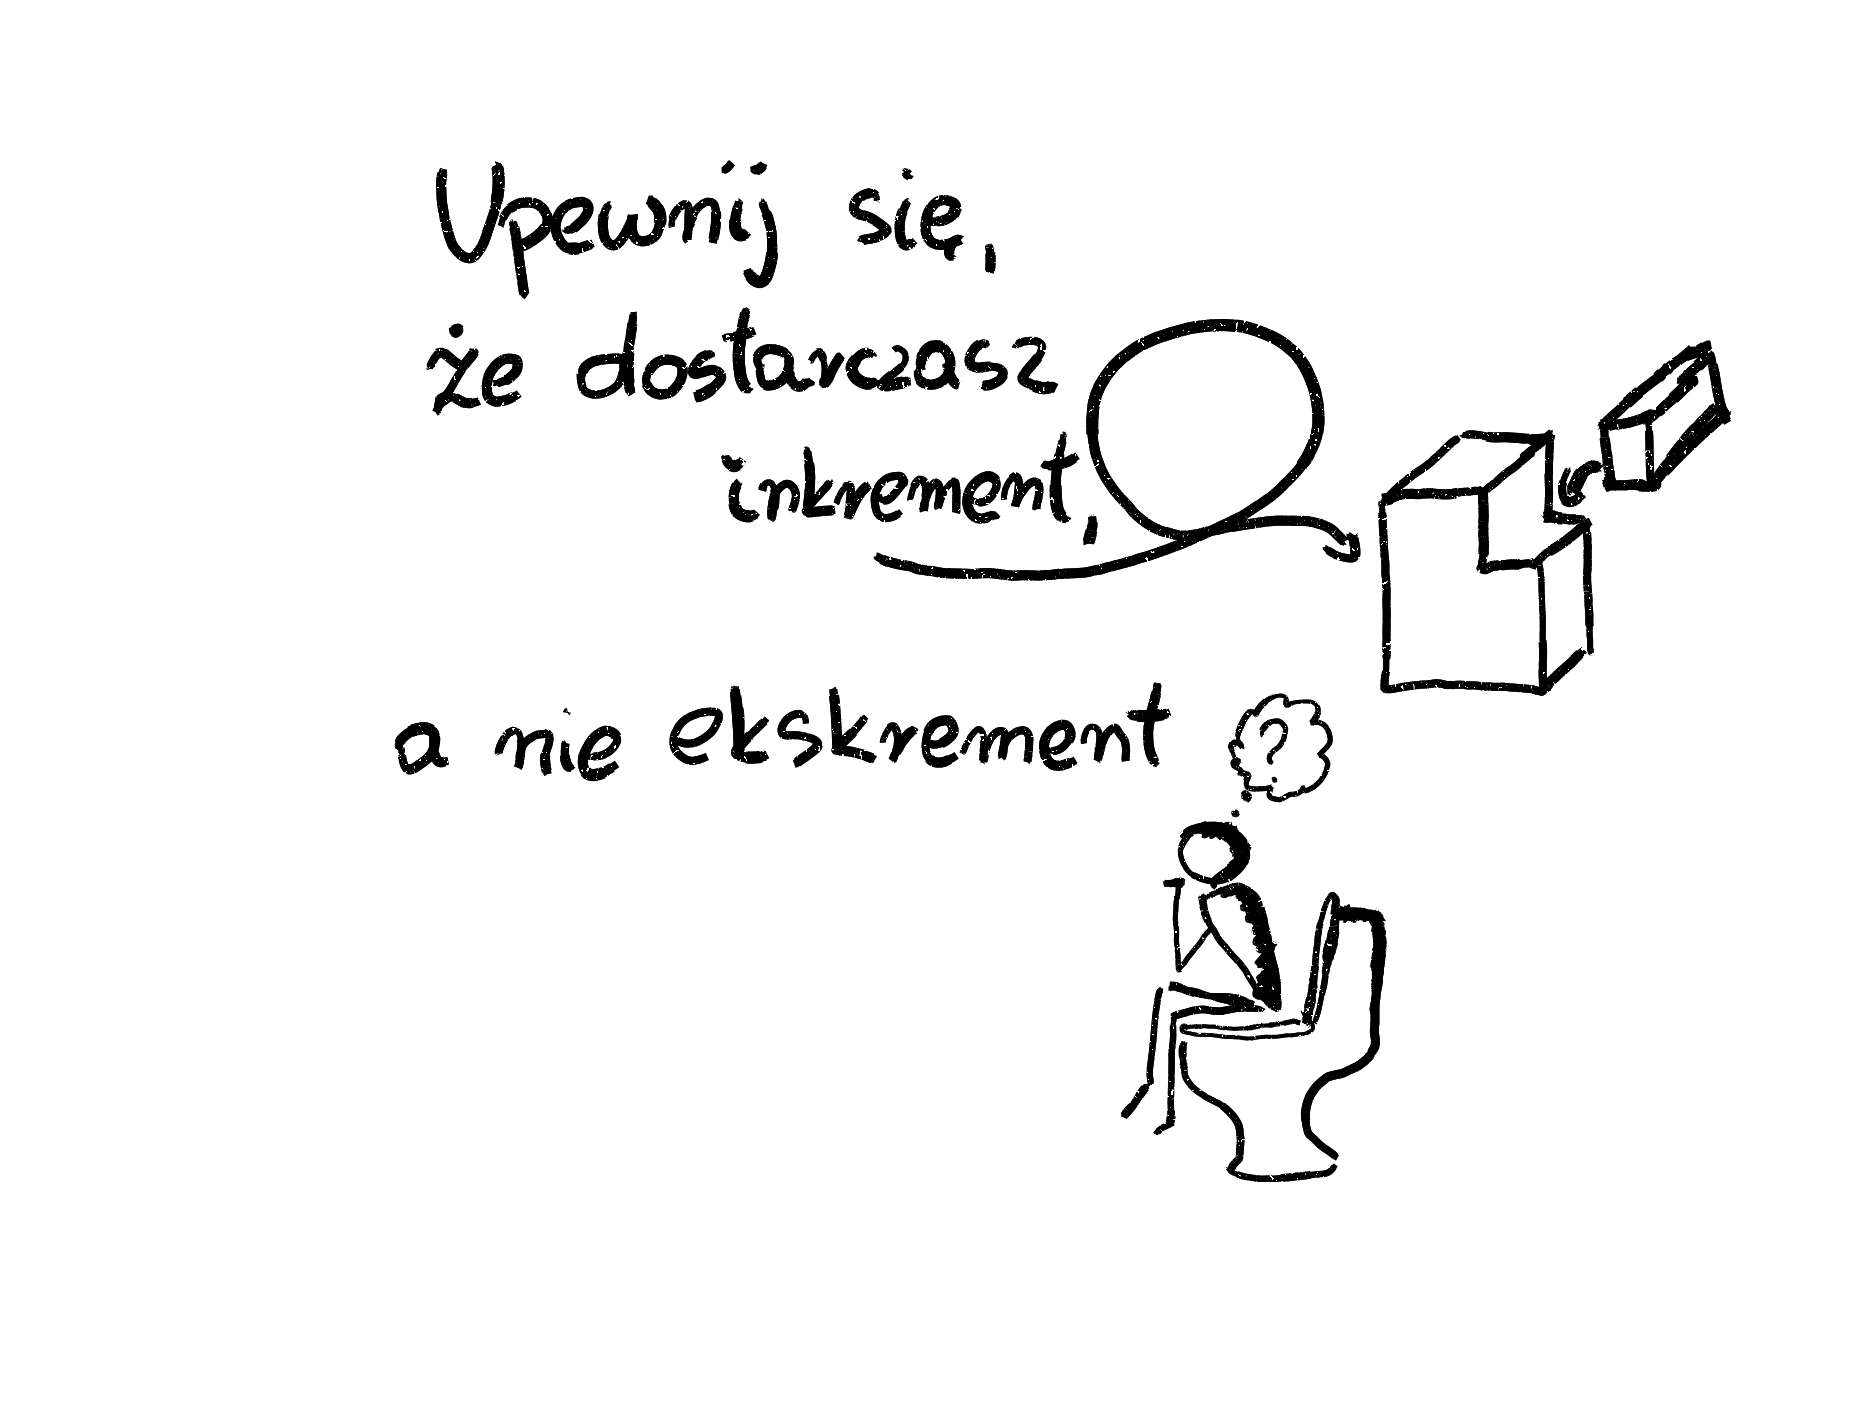 Upewnij się,
że dostarczasz
inkrement,
a nie ekskrement
?